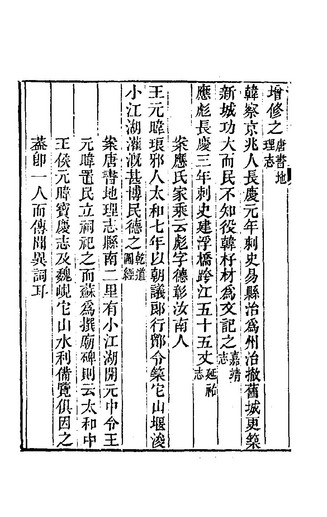 增修之唐書地理志
韓察京兆人長慶元年刺史易縣治為州治撤舊城更築
新城功大而民不知役韓杍材為文記之嘉靖志
應彪長慶三年刺史建浮橋跨江五十五丈延祐志
案應氏家乘云彪字德彰汝南人
王元暐琅邪人太和七年以朝議郎行鄮令築它山堰浚
小江湖灌漑甚博民德之乾道圖經
案唐書地理志縣南二里有小江湖開元中令王
元暐置民立祠祀之而蘇為撰廟碑則云太和中
王侯元暐寶慶志及魏峴它山水利備覽俱因之
葢卽一人而傳聞異詞耳